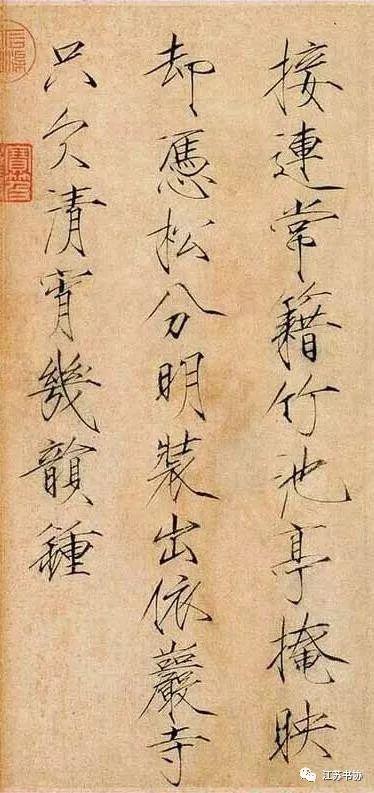 接連常籍竹池亭掩映
却憑松分明裝出依巖寺
只欠清宵幾韻鍾
江苏书协